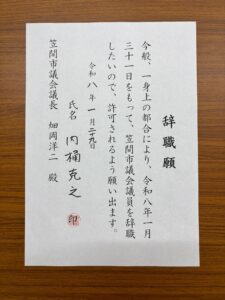 辞職願
今般、一身上の都合により、令和八年一月
三十一日をもって、笠間市議会議員を辞職
したいので、許可されるよう願い出ます。
令和八年一月二十九日
氏名 内桶克之 印
笠間市議会議長 畑岡洋二 殿